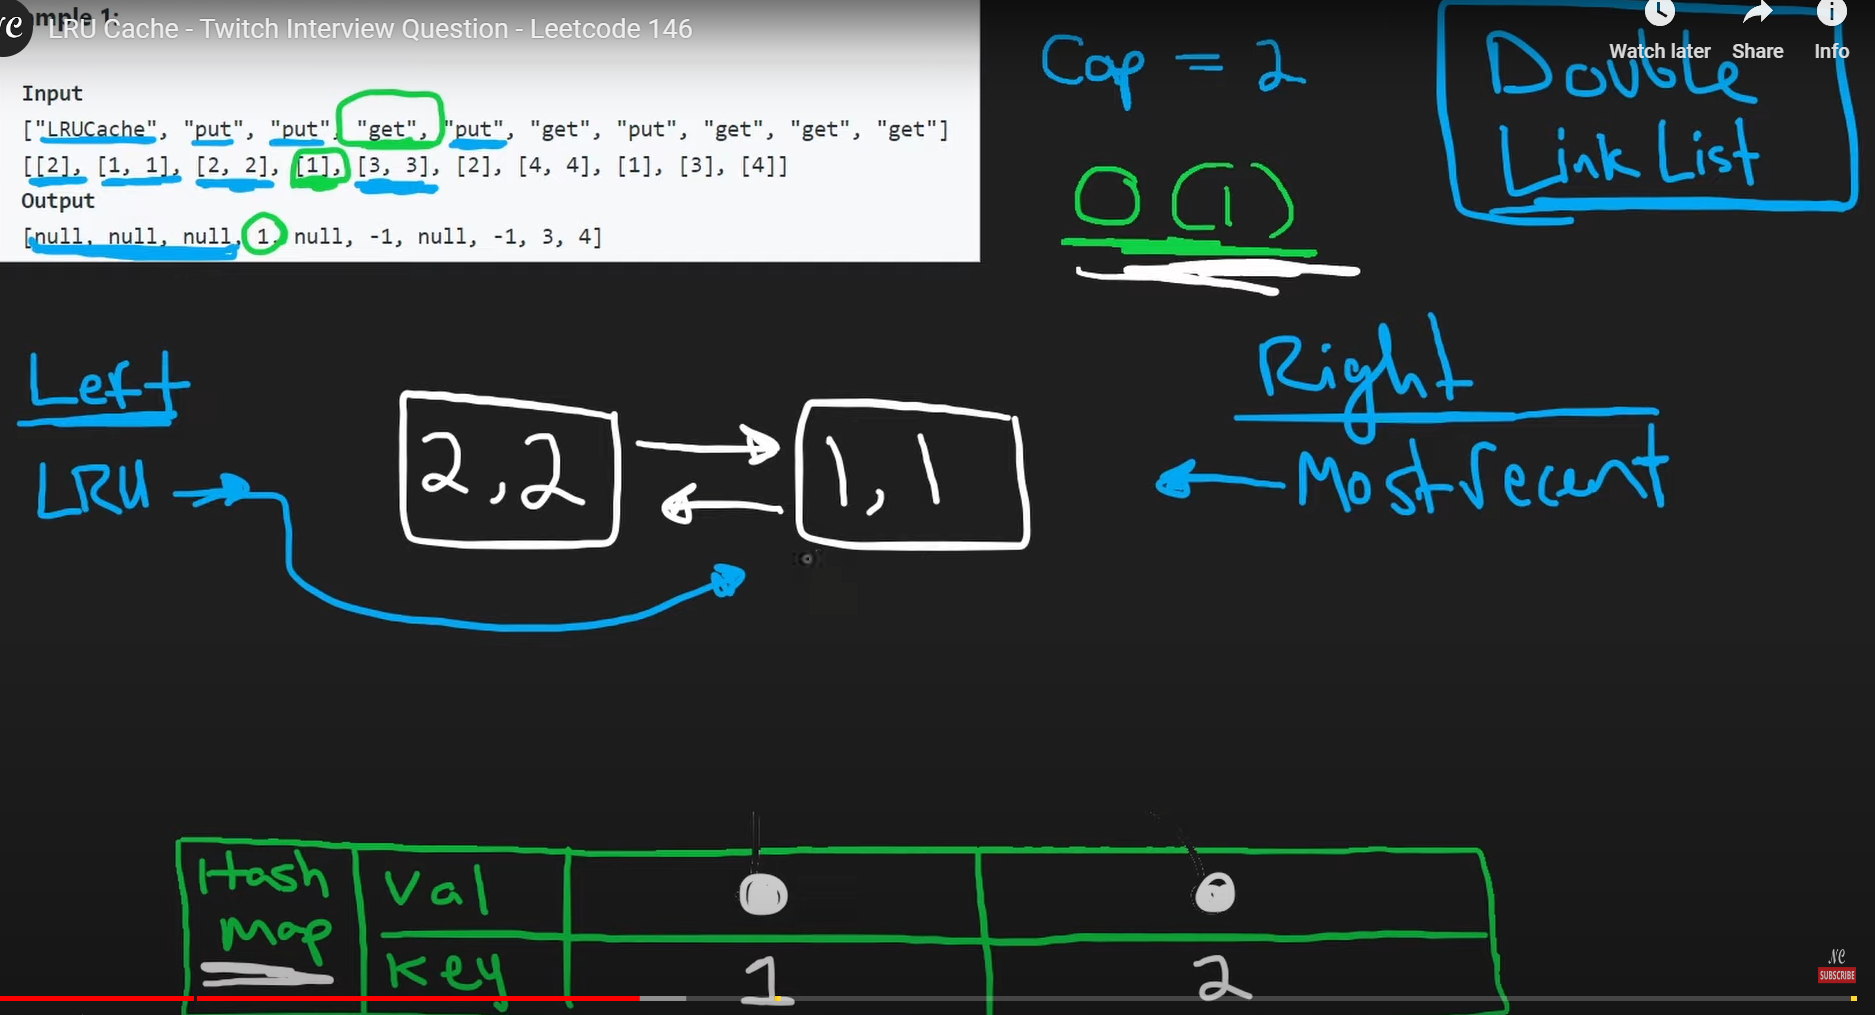 mple 1:
LRU Cache - Twitch Interview Question - Leetcode 146
Watch later Share Info
Input
["LRUCache", "put", "put", "get", "put", "get", "put", "get", "get", "get"]
[[2], [1, 1], [2, 2], [1], [3, 3], [2], [4, 4], [1], [3], [4]]
Output
[null, null, null, 1, null, -1, null, -1, 3, 4]
Cap = 2
O(1)
Double
Link List
Left
LRU
2,2
1,1
Right
Most recent
Hash
Map
Val
Key
1
2
NC
SUBSCRIBE